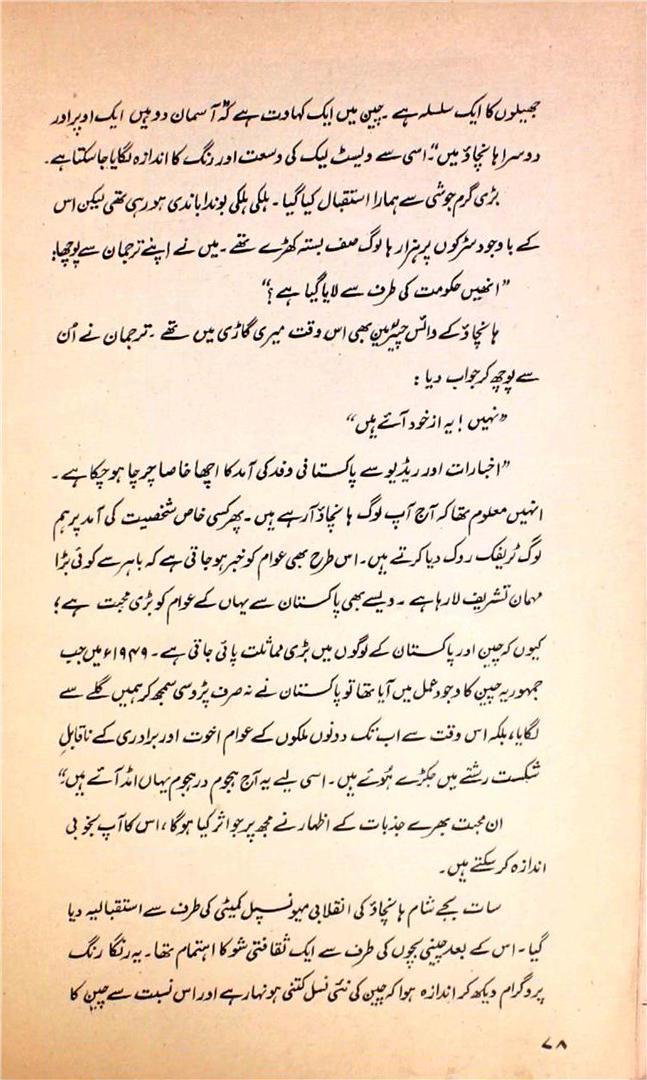 جھیلوں کا ایک سلسلہ ہے ۔ چین میں ایک کہاوت ہے کہ "آسمان دو ہیں ایک اوپر اور
دوسرا ہانچاؤ میں"۔ اسی سے ویسٹ لیک کی وسعت اور رنگ کا اندازہ لگایا جا سکتا ہے۔
بڑی گرم جوشی سے ہمارا استقبال کیا گیا ۔ ہلکی ہلکی بوندا باندی ہو رہی تھی لیکن اس
کے باوجود سڑکوں پر ہزار ہا لوگ صف بستہ کھڑے تھے ۔ میں نے اپنے ترجمان سے پوچھا:
"انھیں حکومت کی طرف سے لایا گیا ہے ؟"
ہانچاؤ کے وائس چیئرمین بھی اس وقت میری گاڑی میں تھے ۔ ترجمان نے اُن
سے پوچھ کر جواب دیا :
"نہیں ! یہ از خود آئے ہیں"
"اخبارات اور ریڈیو سے پاکستانی وفد کی آمد کا اچھا خاصا چرچا ہو چکا ہے ۔
انہیں معلوم تھا کہ آج آپ لوگ ہانچاؤ آ رہے ہیں ۔ پھر کسی خاص شخصیت کی آمد پر ہم
لوگ ٹریفک روک دیا کرتے ہیں۔ اس طرح بھی عوام کو خبر ہو جاتی ہے کہ باہر سے کوئی بڑا
مہمان تشریف لا رہا ہے ۔ ویسے بھی پاکستان سے یہاں کے عوام کو بڑی محبت ہے ؛
کیوں کہ چین اور پاکستان کے لوگوں میں بڑی مماثلت پائی جاتی ہے ۔ ۱۹۴۹ء میں جب
جمہوریہ چین کا وجود عمل میں آیا تھا تو پاکستان نے نہ صرف پڑوسی سمجھ کر ہمیں گلے سے
لگایا، بلکہ اس وقت سے اب تک دونوں ملکوں کے عوام اخوت اور برادری کے ناقابلِ
شکست رشتے میں جکڑے ہوئے ہیں ۔ اسی لیے یہ آج ہجوم در ہجوم یہاں امڈ آئے ہیں۔"
ان محبت بھرے جذبات کے اظہار نے مجھ پر جو اثر کیا ہوگا ، اس کا آپ بخوبی
اندازہ کر سکتے ہیں۔
سات بجے شام ہانچاؤ کی انقلابی میونسپل کمیٹی کی طرف سے استقبالیہ دیا
گیا ۔ اس کے بعد چینی بچوں کی طرف سے ایک ثقافتی شو کا اہتمام تھا ۔ یہ رنگا رنگ
پروگرام دیکھ کر اندازہ ہوا کہ چین کی نئی نسل کتنی ہونہار ہے اور اس نسبت سے چین کا
۷۸